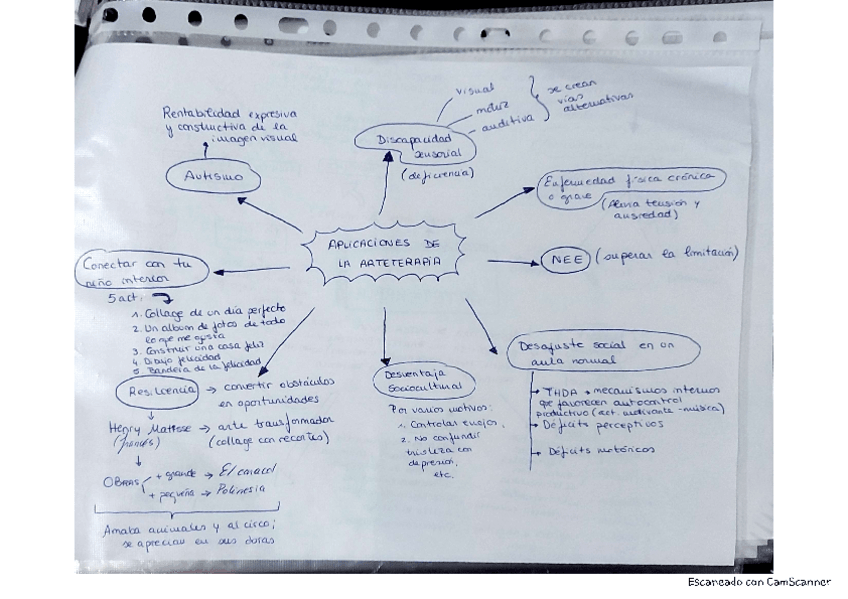 Rentabilidad expresiva
y constructiva de la
imagen visual
Autismo
Discapacidad
sensorial
(deficiencia)
visual
motriz
auditiva
se crean
vías
alternativas
Enfermedad física crónica
o grave (Alivia tensión y
ansiedad)
APLICACIONES DE
LA ARTETERAPIA
NEE (superar la limitación)
Conectar con tu
niño interior
5 act.
1. Collage de un día perfecto
2. Un album de fotos de todo
lo que me gusta
3. Construir una casa feliz
4. Dibujo felicidad
5. Bandera de la felicidad
Resiliencia → convertir obstáculos
en oportunidades
Henry Matisse → arte transformador
(francés) (collage con recortes)
OBRAS + grande → El caracol
+ pequeña → Polinesia
Amaba animales y al circo;
se aprecian en sus obras
Desventaja
sociocultural
Por varios motivos:
1. Controlar enojo,
2. No confundir
tristeza con
depresión,
etc.
Desajuste social en un
aula normal
THDA → mecanismos internos
que favorecen autocontrol
productivo (act. motivante - música)
Déficits perceptivos
Déficits motóricos
Escaneado con CamScanner